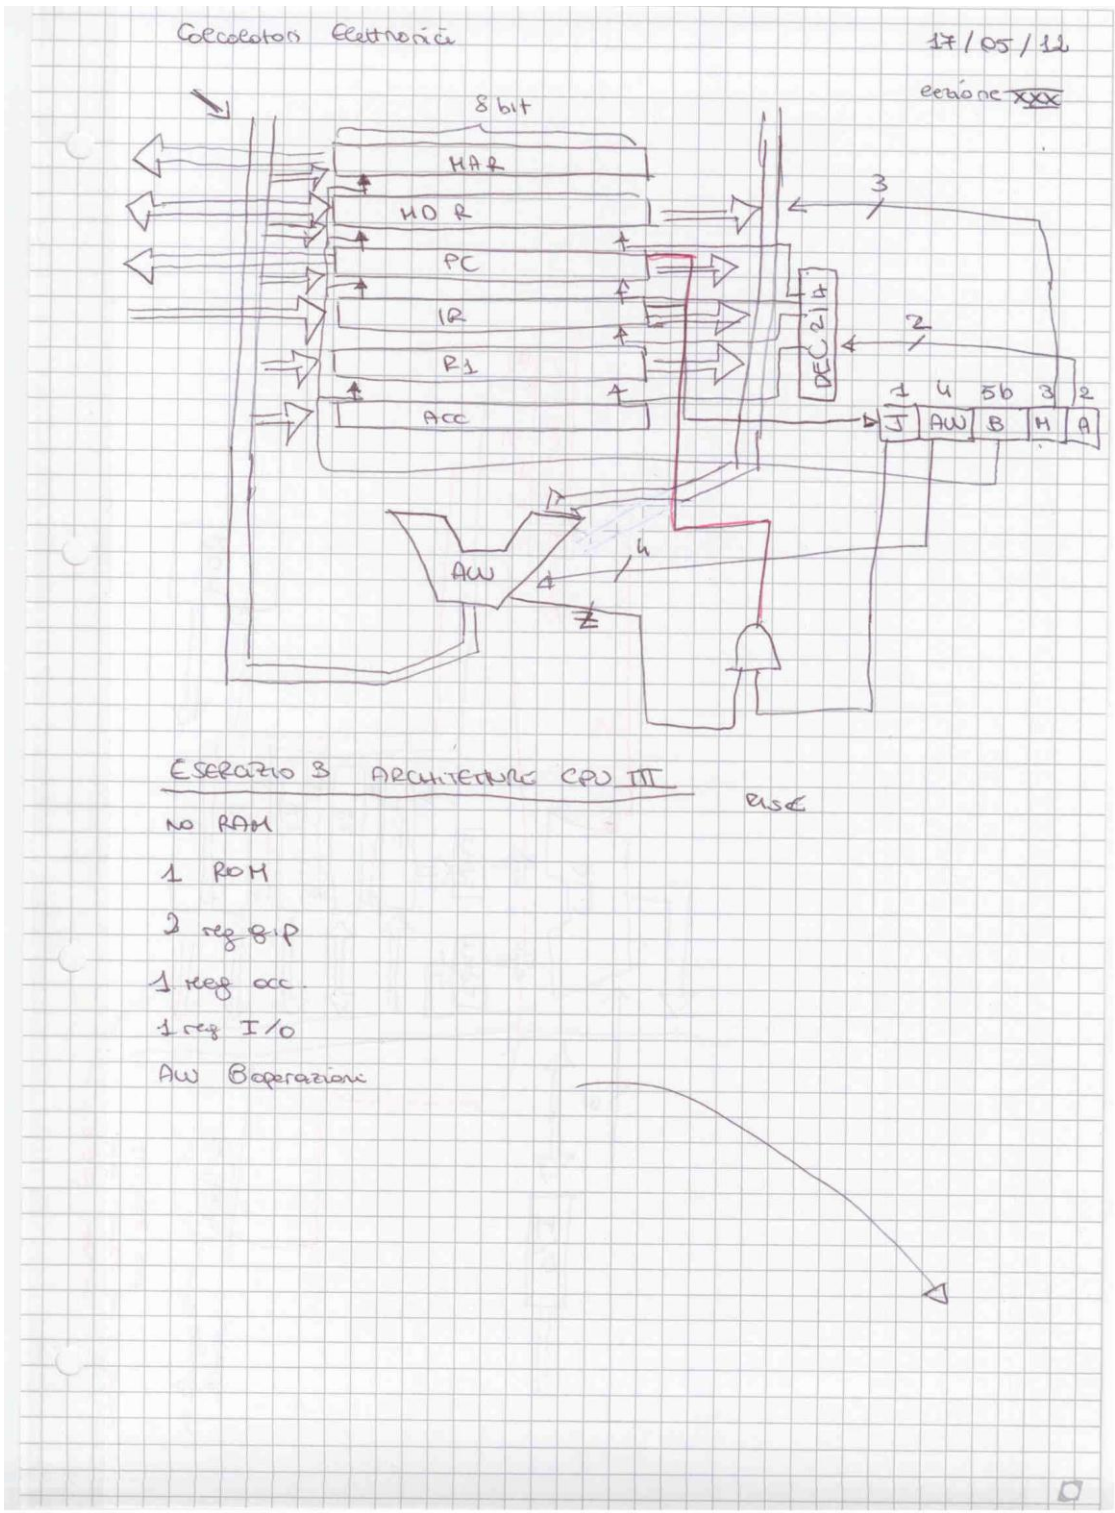 Calcolatori Elettronici
17/05/12
lezione XXX
8 bit
MAR
3
MDR
PC
IR
DEC 2/4
2
R1
1 4 5b 3 2
ACC
J ALU B M A
4
ALU
Z
ESERCIZIO 3 ARCHITETTURE CPU III
RISC
NO RAM
1 ROM
2 reg g.p
1 reg acc.
1 reg I/O
ALU 8 operazioni